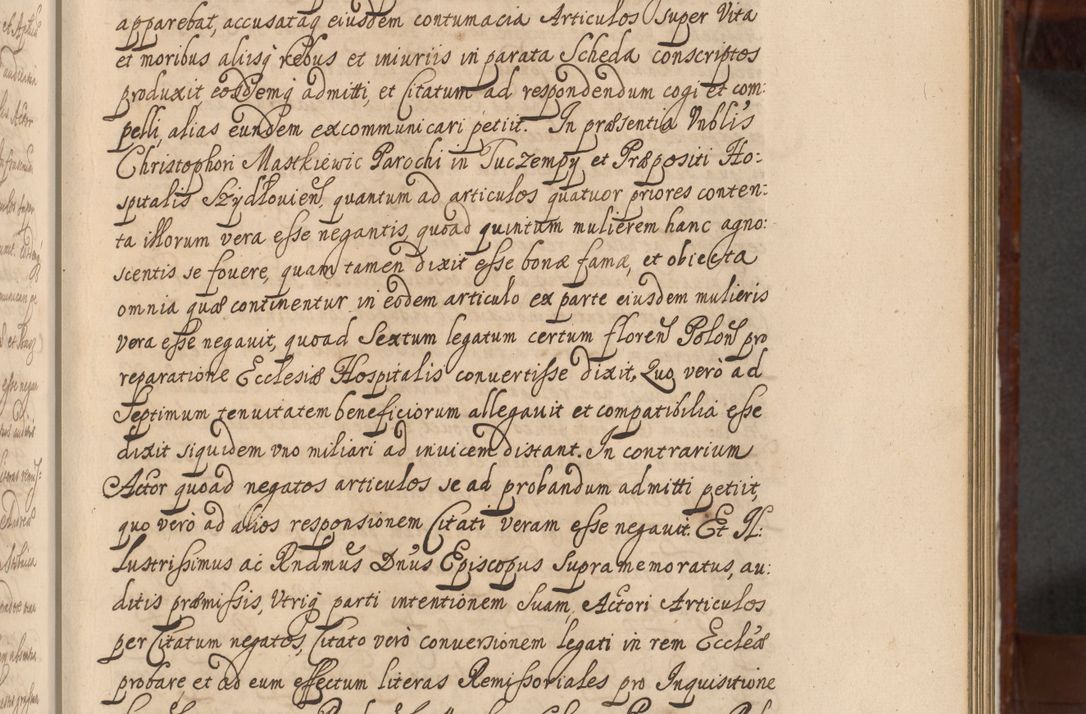 apparebat, accusataq eiusdem contumacia Articulos super Vita
et moribus alijsq rebus et iniuriis in parata Scheda conscriptos
produxit, eosdemq admitti, et Citatum ad respondendum cogi et com:
pelli, alias eundem excommunicari petiit. In præsentia Vnblis
Christophori Mastkiewic Parochi in Tuczempy et Præpositi Ho:
spitalis Szydłouien, quantum ad articulos quatuor priores conten:
ta illorum vera esse negantis, quoad quintum mulierem hanc agno:
scentis se fouere, quam tamen dixit esse bonæ famæ, et obiecta
omnia quæ continentur in eodem articulo ex parte eiusdem mulieris
vera esse negauit, quoad Sextum legatum certum floren Polon pro
reparatione Ecclesiæ Hospitalis conuertisse dixit, Quo verò ad
Septimum tenuitatem beneficiorum allegauit et compatibilia esse
dixit siquidem vno miliari ad inuicem distant. In contrarium
Actor quoad negatos articulos se ad probandum admitti petiit,
quo verò ad alios responsionem Citati veram esse negauit. Et Il:
lustrissimus ac Rndmus Dnus Episcopus supra memoratus, au:
ditis præmissis, Vtriq parti intentionem suam, Actori Articulos
per Citatum negatos, Citato verò conuersionem legati in rem Eccleæ
probare et ad eum effectum literas Remissoriales pro Inquisitione